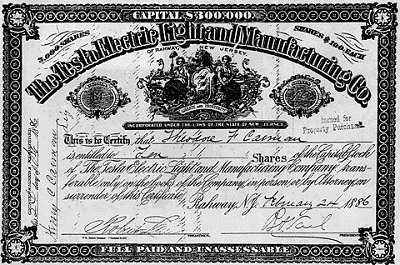 CAPITAL $300,000.
3,000 SHARES
SHARES $100. EACH
The Tesla Electric Light and Manufacturing Co.
OF RAHWAY NEW JERSEY.
INCORPORATED UNDER THE LAWS OF THE STATE OF NEW JERSEY.
Issued for
Property Purchased
This is to Certify that Theodore F
is entitled to Ten Shares of the Capital Stock
of The Tesla Electric Light and Manufacturing Company, trans-
ferable only on the books of the Company, in person or by Attorney on
surrender of this Certificate.
Rahway N.J. February 24 1886
FULL PAID AND UNASSESSABLE